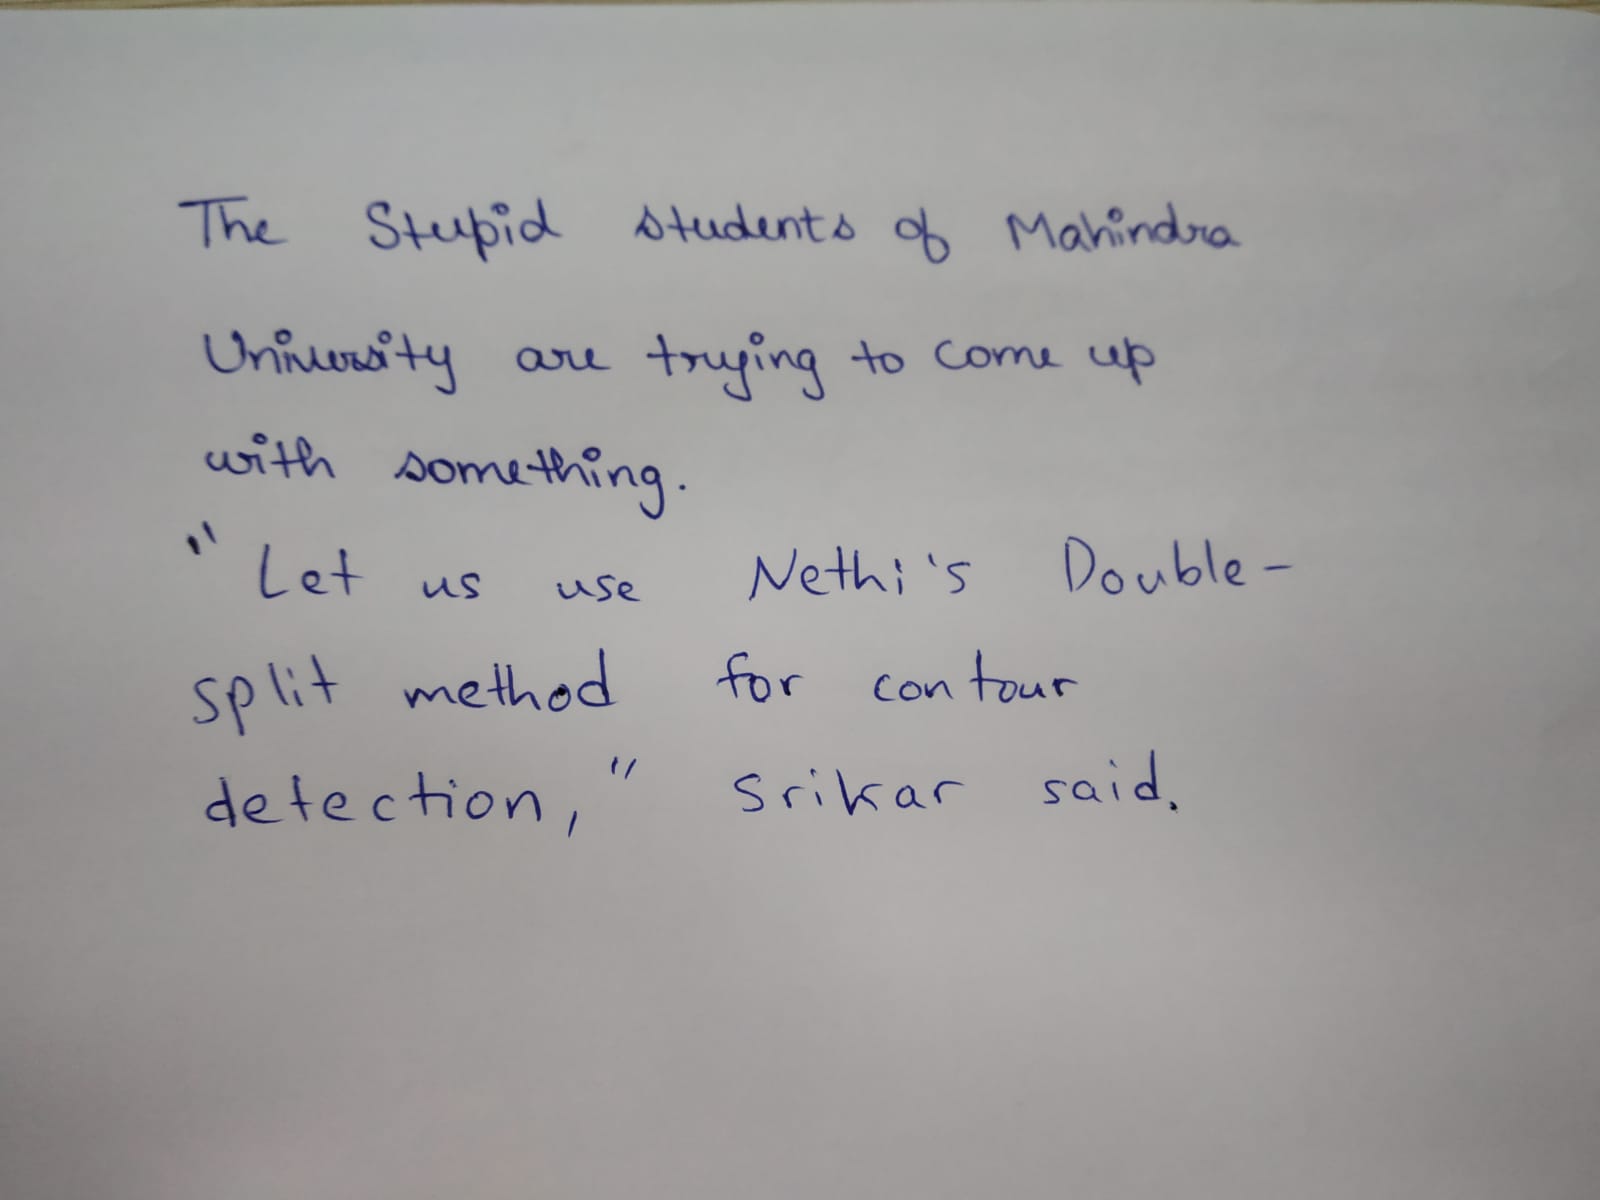 The Stupid students of Mahindra
University are trying to come up
with something.
"Let us use Nethi's Double-
split method for contour
detection," Srikar said.